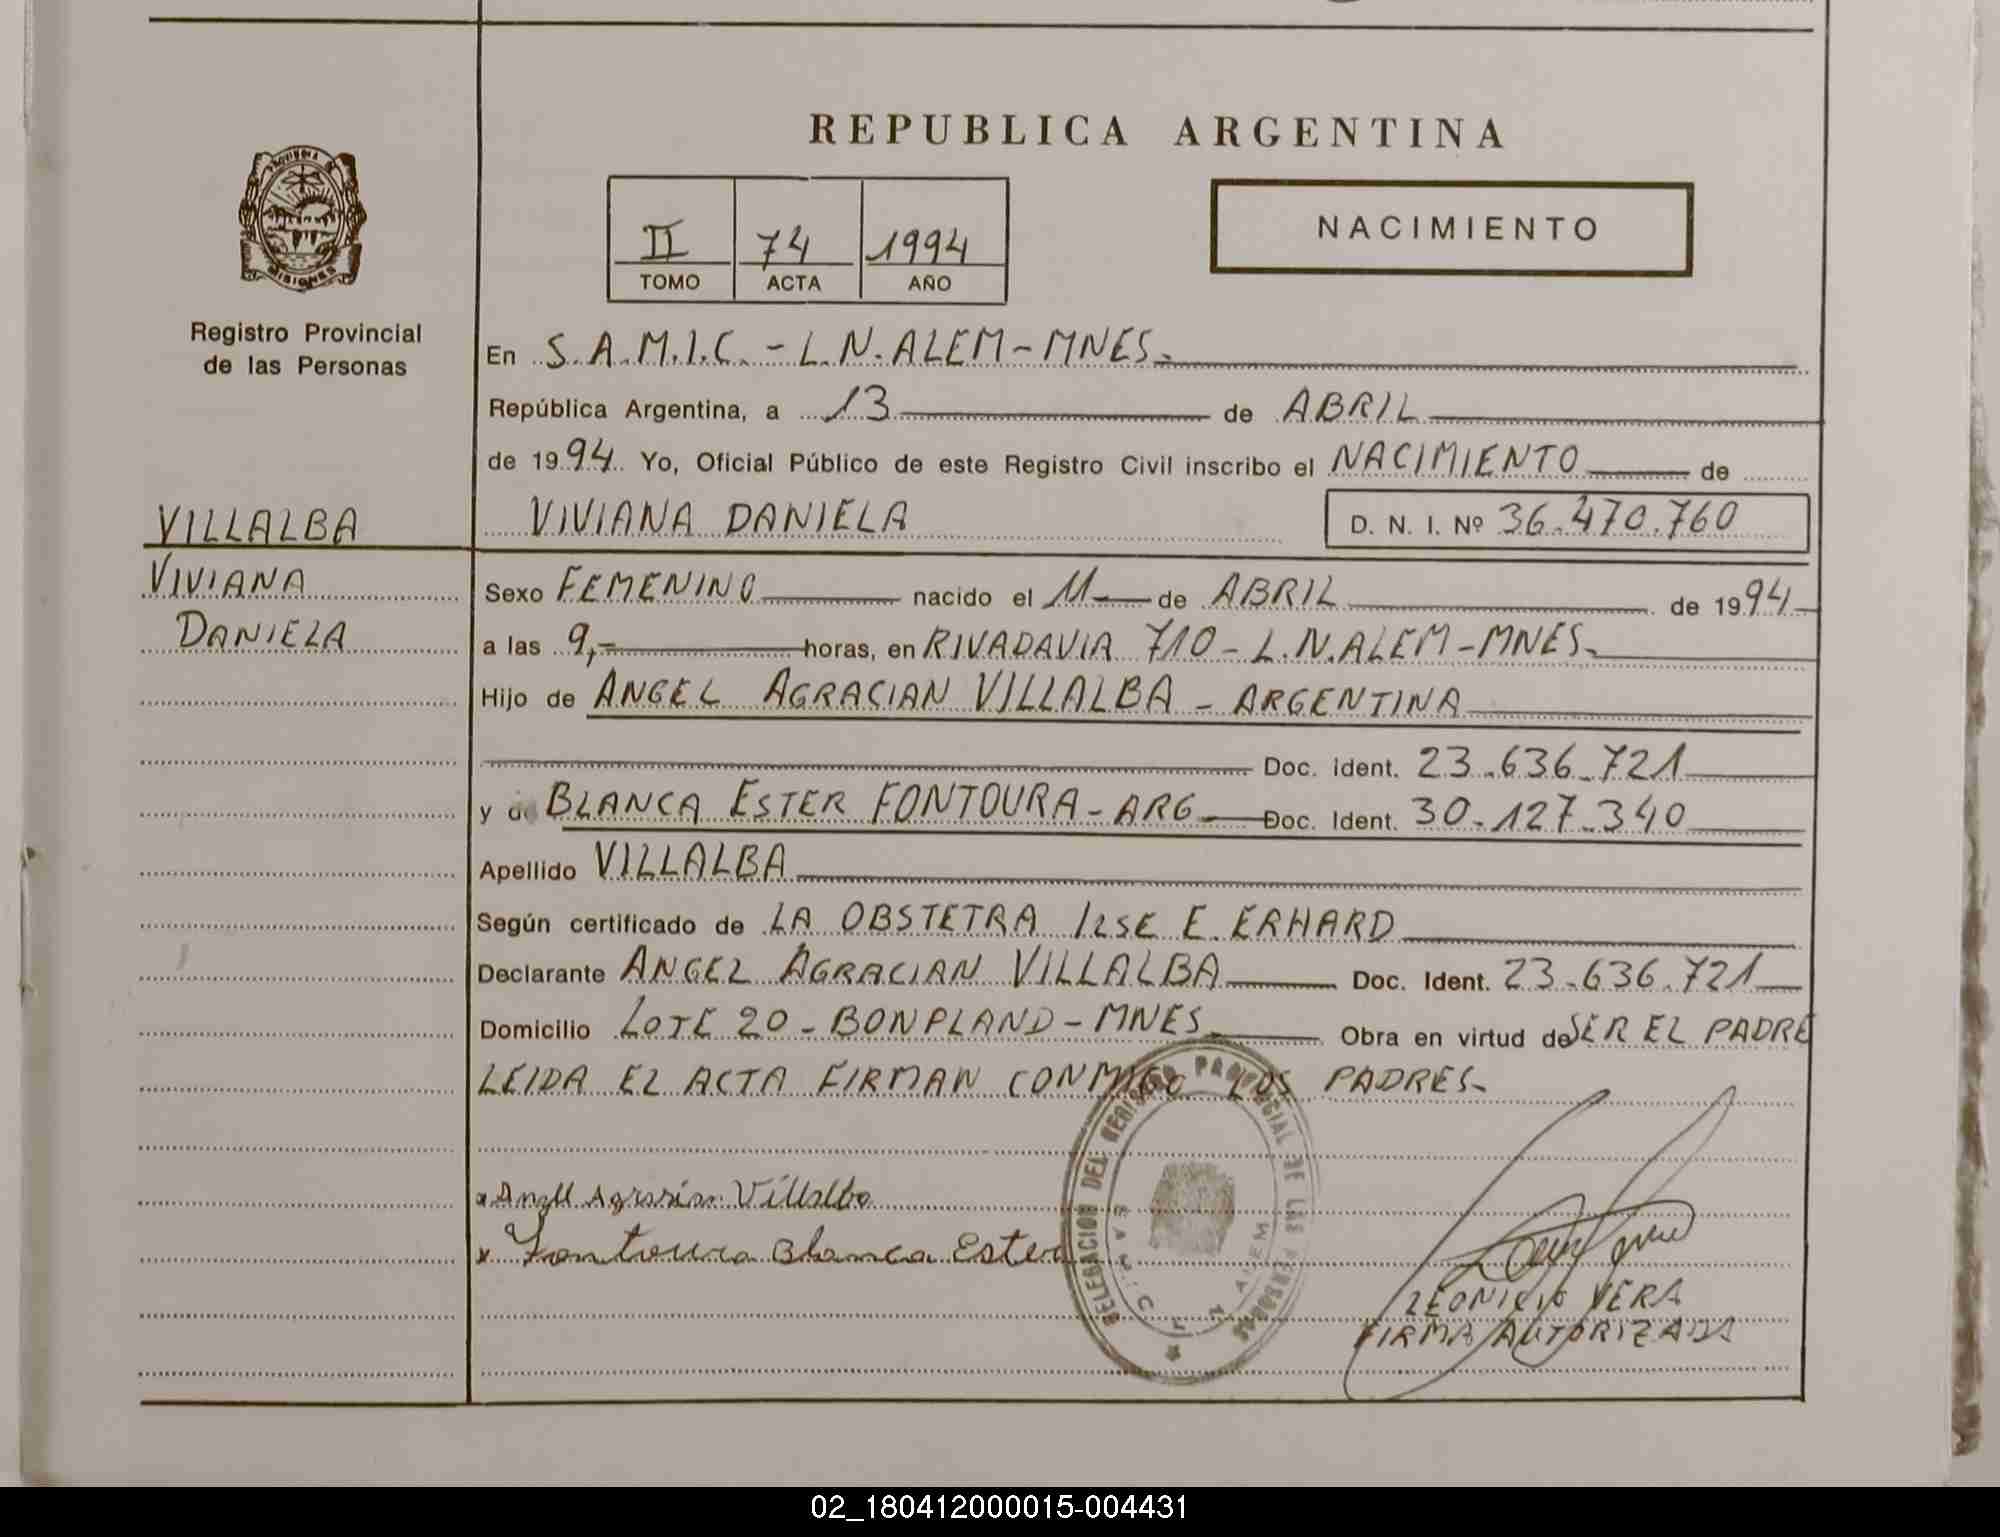 REPUBLICA ARGENTINA
PROVINCIA DE
MISIONES
Registro Provincial
de las Personas
II 74 1994
TOMO ACTA AÑO
NACIMIENTO
En S.A.M.I.C. - L.N.ALEM-MNES-
República Argentina, a 13 de ABRIL
de 1994 Yo, Oficial Público de este Registro Civil inscribo el NACIMIENTO de
VIVIANA DANIELA D. N. I. Nº 36.470.760
VILLALBA
VIVIANA
DANIELA
Sexo FEMENINO nacido el 11 de ABRIL de 1994
a las 9,- horas, en RIVADAVIA 710 - L.N.ALEM-MNES-
Hijo de ANGEL AGRACIAN VILLALBA - ARGENTINA
Doc. Ident. 23.636.721
y de BLANCA ESTER FONTOURA - ARG Doc. Ident. 30-127-340
Apellido VILLALBA
Según certificado de LA OBSTETRA ILSE E. ERHARD
Declarante ANGEL AGRACIAN VILLALBA Doc. Ident. 23.636.721
Domicilio LOTE 20 - BONPLAND - MNES Obra en virtud de SER EL PADRE
LEIDA EL ACTA FIRMAN CONMIGO LOS PADRES-
x Angel Agracian Villalba
x Fontoura Blanca Ester
DELEGACION DEL REGISTRO PROVINCIAL DE LAS PERSONAS
LEONICIO VERA
FIRMA AUTORIZADA
02_180412000015-004431